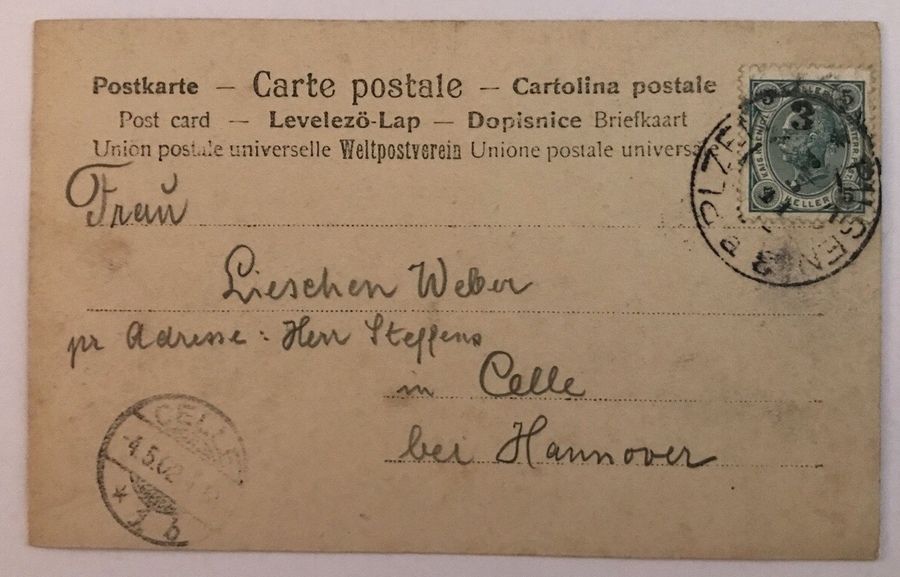 Postkarte – Carte postale – Cartolina postale
Post card – Levelezö-Lap – Dopisnice Briefkaart
Union postale universelle Weltpostverein Unione postale universa
Frau
Lieschen Weber
pr Adresse: Herr Steffens
in Celle
bei Hannover
5 5
3
HELLER
PILSEN 3 PLZE
CELLE
-4.5.02
* b